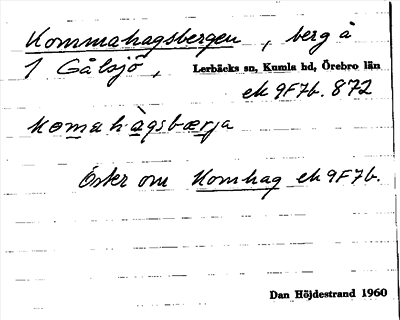 Kommahagsbergen, berg å
1 Gålsjö, Lerbäcks sn, Kumla hd, Örebro län
ek 9F7b. 872
komahàgsbærja
Öster om Komhag ek 9F7b.
Dan Höjdestrand 1960